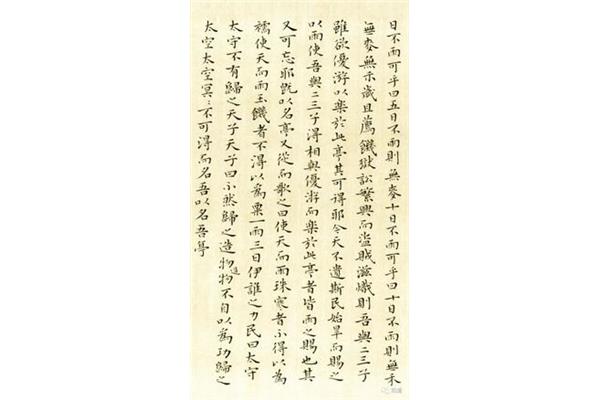 日不雨可乎曰五日不雨則無麥十日不雨可乎曰十日不雨則無禾
無麥無禾歲且薦饑獄訟繁興而盜賊滋熾則吾與二三子
雖欲優游以樂於此亭其可得耶今天不遺斯民始旱而賜之
以雨使吾與二三子得相與優游而樂於此亭者皆雨之賜也其
又可忘耶既以名亭又從而歌之曰使天而雨珠寒者不得以為
襦使天而雨玉饑者不得以為粟一雨三日伊誰之力民曰太守
太守不有歸之天子天子曰不然歸之造物造物不自以為功歸之
太空太空冥〻不可得而名吾以名吾亭